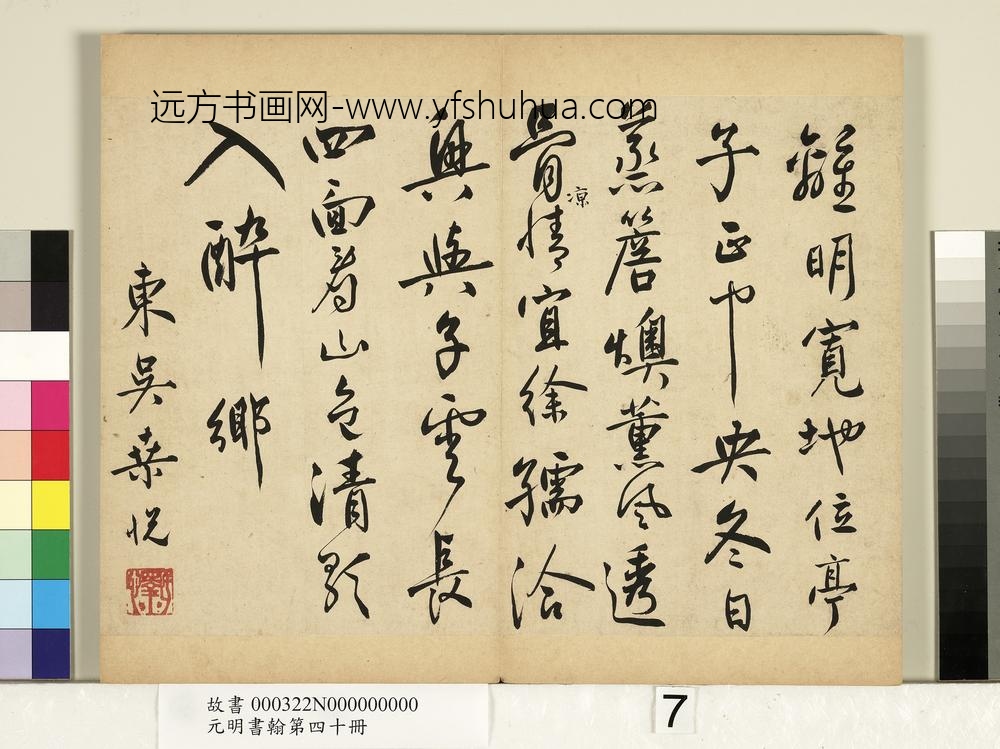 远方书画网-www.yfshuhua.com
離明寬地位亭
子正中央冬日
蒸簷燠薰風透
骨涼情宜徐孺洽
興與子雲長
四面看山色清歌
入醉鄉
東吳桑悅
故書 000322N000000000
元明書翰第四十冊
7